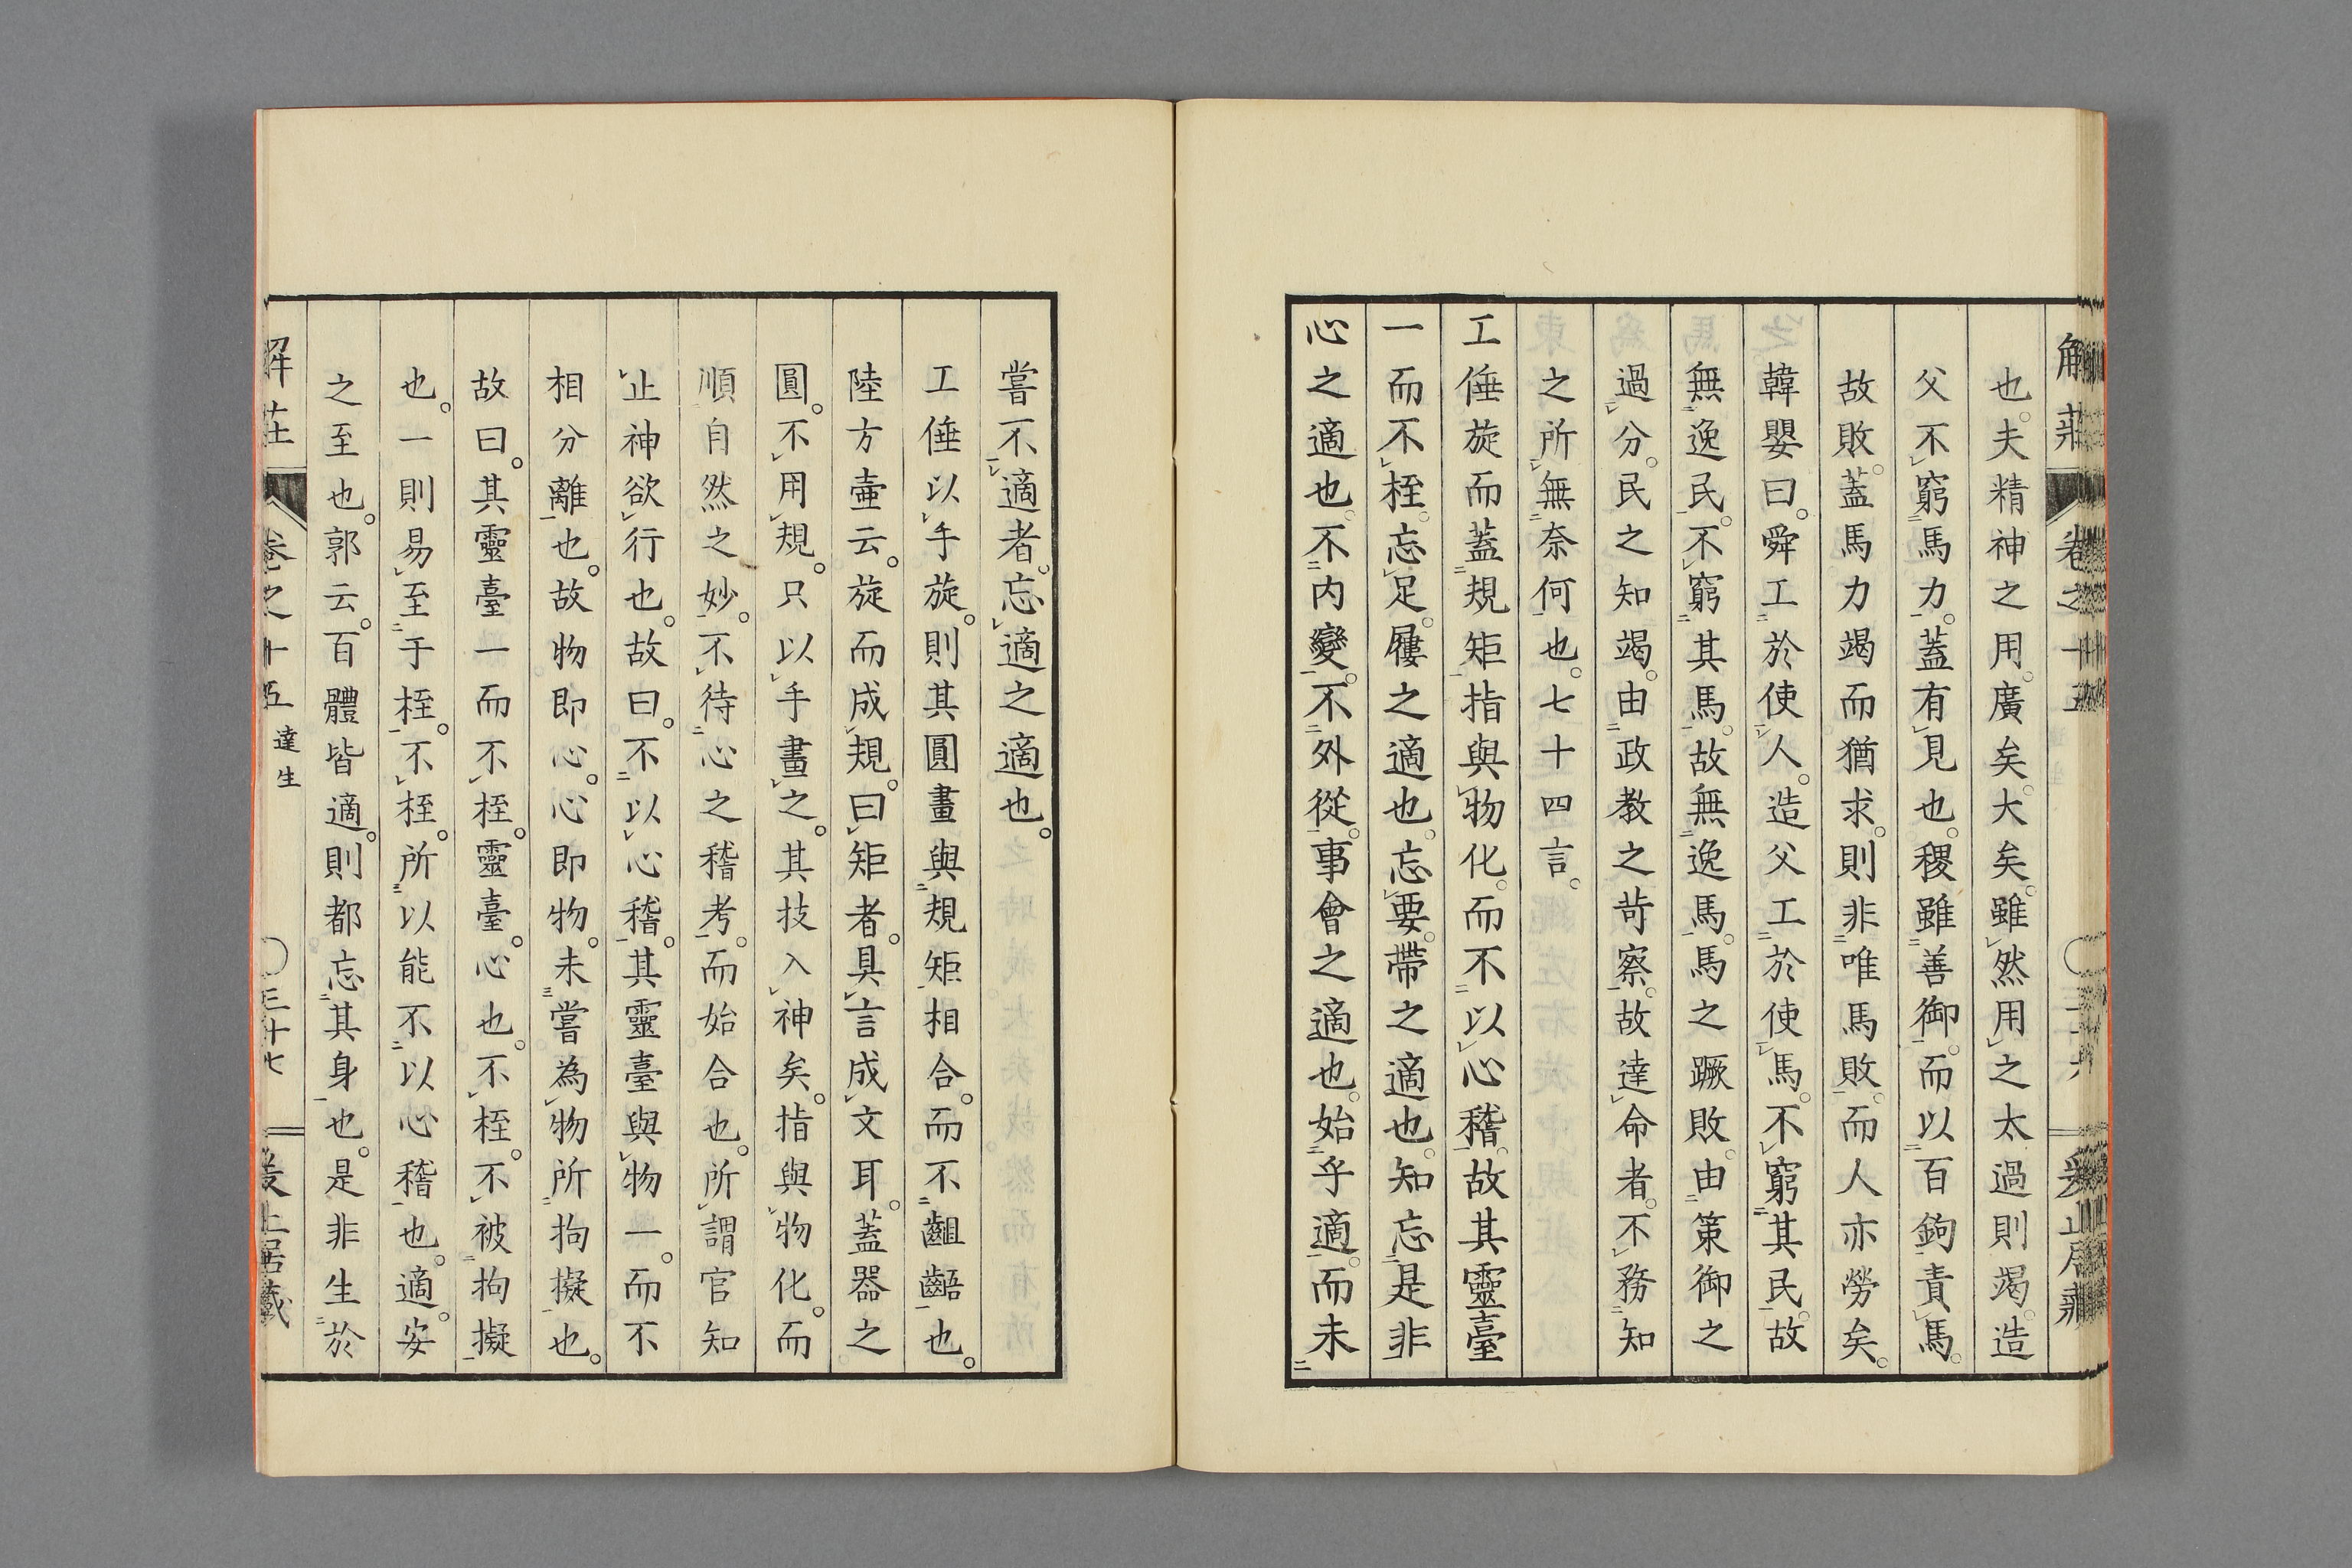 也。夫精神之用。廣矣。大矣。雖然用之太過則竭。造
父不窮馬力。蓋有見也。稷雖善御。而以百鉤責馬。
故敗。蓋馬力竭而猶求。則非唯馬敗。而人亦勞矣。
韓嬰曰。舜工於使人。造父工於使馬。不窮其民。故
無逸民。不窮其馬。故無逸馬。馬之蹶敗。由策御之
過分。民之知竭。由政教之苛察。故達命者。不務知
之所無奈何也。七十四言。
工倕旋而蓋規矩指與物化。而不以心稽。故其靈臺
一而不桎。忘足。屨之適也。忘要。帶之適也。知忘是非
心之適也。不内變。不外從。事會之適也。始乎適。而未
嘗不適者。忘適之適也。
工倕以手旋。則其圓畫與規矩相合。而不齟齬也。
陸方壷云。旋而成規。曰矩者。具言成文耳。蓋器之
圓。不用規。只以手畫之。其技入神矣。指與物化。而
順自然之妙。不待心之稽考。而始合也。所謂官知
止神欲行也。故曰。不以心稽。其靈臺與物一。而不
相分離也。故物即心。心即物。未嘗為物所拘擬也。
故曰。其靈臺一而不桎。靈臺。心也。不桎。不被拘擬
也。一則易至于桎。不桎。所以能不以心稽也。適。安
之至也。郭云。百體皆適。則都忘其身也。是非生於
解莊 卷之十五 達生 三十七